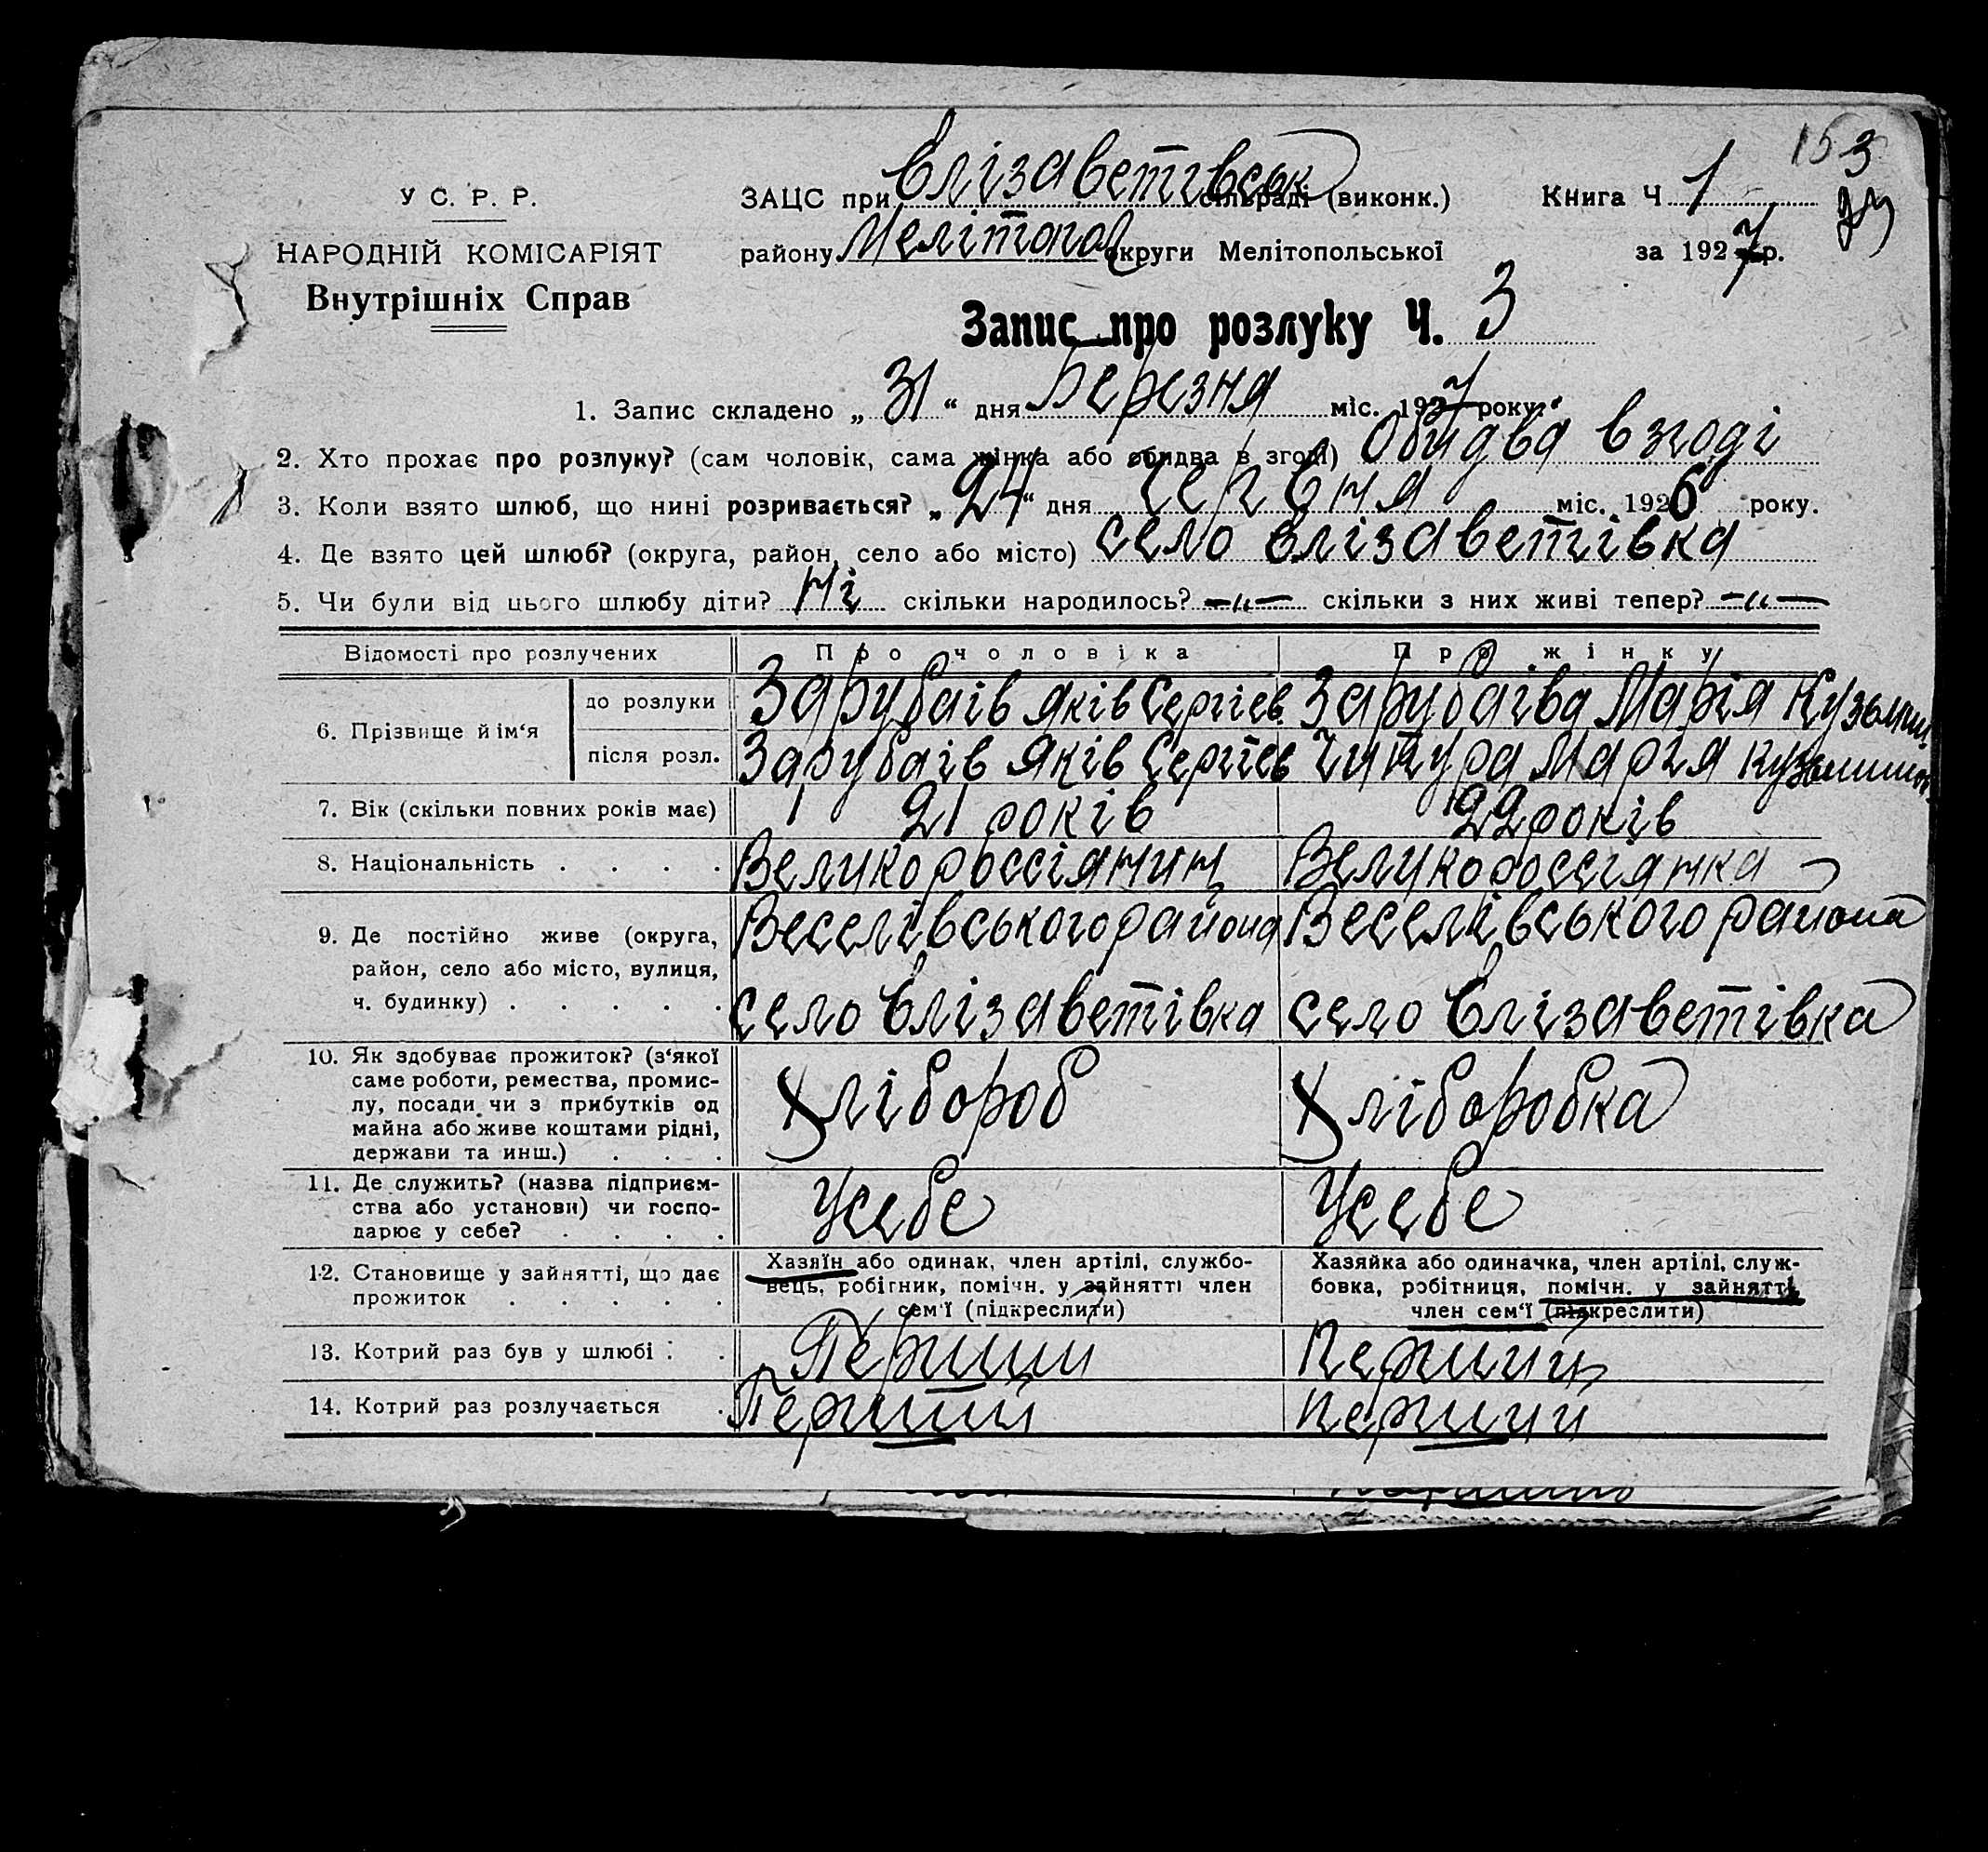 153
У С. Р. Р.
ЗАЦС при Єлізаветівськ сільраді (виконк.)
Книга Ч 1
НАРОДНІЙ КОМІСАРІЯТ
району Мелітопол округи Мелітопольської
за 1927 р.
Внутрішніх Справ
Запис про розлуку Ч. 3
1. Запис складено „ 31 “ дня Березня міс. 1927 року.
2. Хто прохає про розлуку? (сам чоловік, сама жінка або обидва в згоді) Обидва в згоді
3. Коли взято шлюб, що нині розривається? „ 24 “ дня Червня міс. 1926 року.
4. Де взято цей шлюб? (округа, район, село або місто) село Єлізаветівка
5. Чи були від цього шлюбу діти? Ні скільки народилось? —„— скільки з них живі тепер? —„—
Відомості про розлучених
Про чоловіка
Про жінку
6. Прізвище й ім‘я
до розлуки
Зарубаів Яків Сергіев. Зарубаіва Марія Кузьмин.
після розл.
Зарубаів Яків Сергіев Марія
7. Вік (скільки повних років має)
21 років
22 років
8. Національність . . . .
Великороссіянин
Великороссіянка
9. Де постійно живе (округа,
район, село або місто, вулиця,
ч. будинку) . . . . .
Веселівського района
село Єлізаветівка
Веселівського района
село Єлізаветівка
10. Як здобуває прожиток? (з‘якої
саме роботи, ремества, промис-
лу, посади чи з прибутків од
майна або живе коштами рідні,
держави та инш.) . . .
Хлібороб
Хліборобка
11. Де служить? (назва підприєм-
ства або установи) чи госпо-
дарює у себе? . . . .
Усебе
Усебе
12. Становище у зайнятті, що дає
прожиток . . . . .
Хазяїн або одинак, член артілі, службо-
вець, робігник, помічн. у зайнятті член
сем‘ї (підкреслити)
Хазяйка або одиначка, член артілі, служ-
бовка, робітниця, помічн. у зайнятті
член сем‘ї (підкреслити)
13. Котрий раз був у шлюбі . .
Перший
Перший
14. Котрий раз розлучається .
Перший
Перший